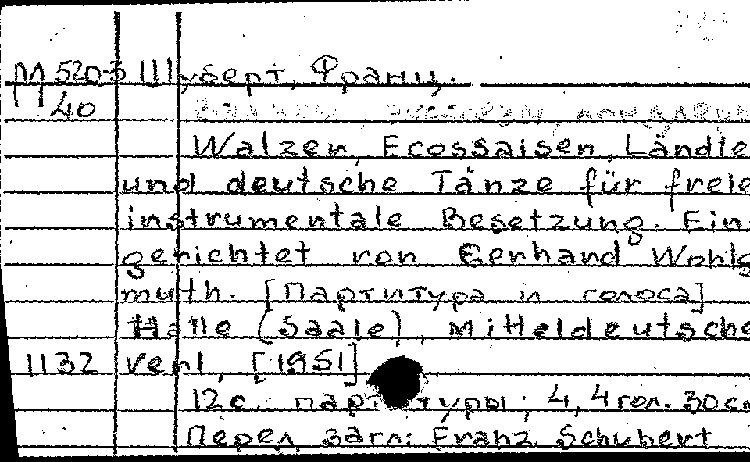 М 520-3 Шуберт, Франц.
40
Walzer, Ecossaisen, Ländle
und deutsche Tänze für freie
instrumentale Besetzung. Ein-
gerichtet von Gerhard Wohlg
muth. [Партитура и голоса]
Halle (Saale), Mitteldeutsche
1132 Verl., [1951]
12с. партитуры; 4, 4 гол. 30 с
Перед загл: Franz Schubert